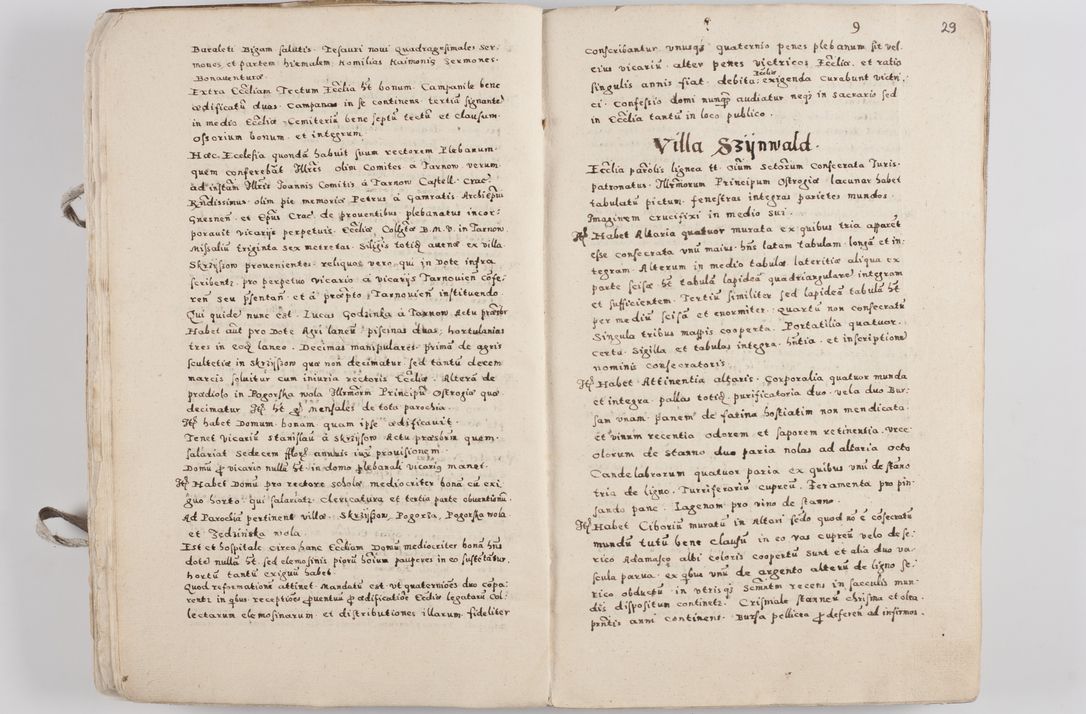 Baraleti Bigam salutis. Tesauri noui Quadragesimales Ser-
mones et partem hiemalem. Homilias Haimonis Sermones
Bonauenturæ
Extra Eccliam Tectum Ecclia ht bonum. Campanile bene
ædificatū duas Campanas in se continens. tertiā signante
in medio Eccliæ Cemiteriū bene septū tectū et clausum.
Ossorium bonum et integrum
Hæc Ecclesia quondā habuit suum rectorem Plebanum
quem conferebāt Illres olim Comites a Tarnow verum
ad instam Illris Joannis Comitis a Tarnow Castell. Crac.
Rndissimus olim piæ memoriæ Petrus a Gamratis Archiepūs
Gnesnen. et Epūs Crac. de prouentibus plebanatus incor-
porauit vicarijs perpetuis Eccliæ Collgtæ B. M. V. in Tarnow
Missaliū triginta sex metretas. Siliginis totiq auenæ ex villa
Skrzijszow prouenientes. reliquos vero qui in Dote infra
scribentr. pro perpetuo vicario a vicarijs Tarnouien cōfe-
ren seu psentan et a præpto Tarnouien instituendo
Qui quidē nunc est Lucas Godzinka a Tarnow Actu præsbr
Habet aūt pro Dote Agri laneū piscinas duas, hortulanias
tres in eoq laneo. Decimas manipulares primā de agris
scultetiæ in Skrzijszow quæ non decimatur sed tantū decem
marcis soluitur cum iniuria rectoris Eccliæ. Alterā de
prædiolo in Pogorska wola Illrmorm Principū Ostrogiæ quæ
decimatur Itē ht mensales de tota parochia.
Itē habet Domum bonam quam ipse ædificauit.
Tenet Vicariū Stanislaū a Skrzijszow Actu præsbrm quem
salariat sedecem flor. annuis iux prouisionem
Domū p vicario nullā ht. in domo plebanali vicariq manet.
Itē Habet Domū pro rectore scholæ mediocriter bonā cū exi-
guo horto qui salariatr. Clericatura et tertia parte obuentionū.
Ad Parochiā pertinent villæ. Skrzijszow, Pogorza, Pogorska wola
et Zedzinska wola
Est et hospitale circa hanc Eccliam Domū mediocriter bonā hns
dotē nullā ht. sed elemosinis piorū hoium pauperes in eo sustētātur,
hortū tantū exiguū habet
Quod reformationē attinet Mandatū est vt quaterniōes duo cōpa-
rentr in qbus receptiōes puentuū p ædificatiōe Eccliæ legatarū Col-
lectarum elemosinarum et distributiones illarum fideliter
9
29
conscribantur vnusqs quaternio penes plebanum sit vel
eius vicariū. alter penes vietricos Eccliæ. et ratio
singulis annis fiat. debita Eccliæ exigenda curabunt vietri-
ci. Confessio domi nunqm audiatur neqs in sacrario sed
in Ecclia tantū in loco publico.
Villa Szijnwald.
Ecclia parolis lignea tt. Oium Sctorum Consecrata Juris
patronatus Illrmorum Principum Ostrogiæ lacunar habet
tabulatū pictum. fenestras integras parietes mundos.
Imaginem crucifixi in medio sui.
Itē Habet Altaria quatuor murata ex quibus tria apparet
esse consecrata vnū maius. hns latam tabulam longā et in-
tegram. Alterum in medio tabulæ lateritiæ aliqua ex
parte scisæ ht tabulā lapideā quadriangularē integram
et sufficientem. Tertiū similiter sed lapideā tabulā ht
per mediū scisā et enormiter. Quartū non consecratū
Singula tribus mappis cooperta. Portatilia quatuor.
certa. Sigilla et tabulas integra hntia. et inscriptione
nominis consecratoris
Itē Habet Attinentia altaris. Corporalia quatuor munda
et integra. pallas totiq. purificatoria duo. vela duo Bur-
sam vnam. panem de farina hostiatim non mendicata
et vinum recentia odorem et saporem retinentia. vrce-
olorum de Stanno duo paria nolas ad altaria octo
Candelabrorum quatuor paria ex quibus vnū de stāno
tria de ligno. Turriferariū cupreū. Feramenta pro pin-
sando pane. Lagenam pro vino de stanno.
Itē Habet Ciboriū muratū in Altari sēdo quod nō ē cōsecratū
mundū tutū bene clausū in eo vas cupreū velo de se-
rico Adamasco albi coloris coopertū sunt et alia duo va-
scula parua. ex qbus vnū de argento alterū de ligno se-
rico obductū in vtrisq Scmntm recens in sacculis mun-
dis dispositum continetr. Crismale stanneū chrisma et olea
pntis anni continens. Bursa pellicea p deferen ad infirmos